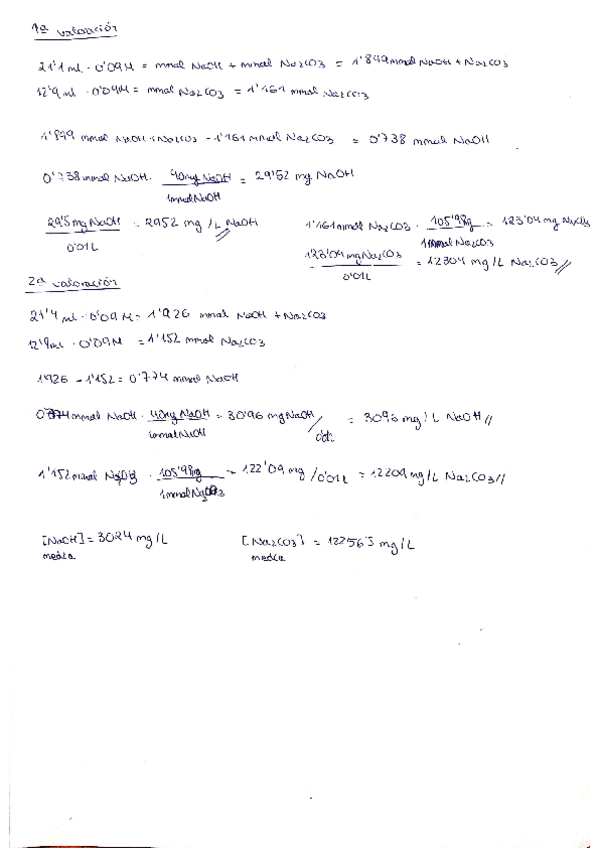 1ª valoración
21'1 ml · 0'09M = mmol NaOH + mmol Na2CO3 = 1'899 mmol NaOH + Na2CO3
12'9 ml · 0'09M = mmol Na2CO3 = 1'161 mmol Na2CO3
1'899 mmol NaOH + Na2CO3 - 1'161 mmol Na2CO3 = 0'738 mmol NaOH
0'738 mmol NaOH · 40mg NaOH / 1mmol NaOH = 29'52 mg NaOH
29'5 mg NaOH / 0'01L = 2952 mg/L NaOH
1'161 mmol Na2CO3 · 105'98mg / 1mmol Na2CO3 = 123'04 mg Na2CO3
123'04 mg Na2CO3 / 0'01L = 12304 mg/L Na2CO3
2ª valoración
21'4 ml · 0'09M = 1'926 mmol NaOH + Na2CO3
ml · 0'09M = 1'152 mmol Na2CO3
1'926 - 1'152 = 0'774 mmol NaOH
0'774 mmol NaOH · 40mg NaOH / 1mmol NaOH = 30'96 mg NaOH / = 3096 mg/L NaOH
1'152 mmol Na2CO3 · 105'98mg / 1mmol Na2CO3 = 122'09 mg / 0'01L = 12209 mg/L Na2CO3
[NaOH] media = 3024 mg/L
[Na2CO3] media = 12256'5 mg/L